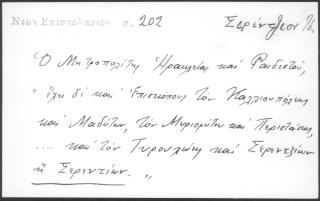 Νεον Επιστολαριον σ. 202
Σερέντζιον Πό.
Ὁ Μητροπολίτης Ἡρακλείας καὶ Ραιδεστοῦ,
" ἔχει δὲ καὶ Ἐπισκόπους τὸν Καλλιουπόλεως
καὶ Μαδύτων, τὸν Μυριοφύτου καὶ Περιστάσεως,
.... καὶ τὸν Τυρολώης καὶ Σερεντζίων
ἢ Σερεντίων. "